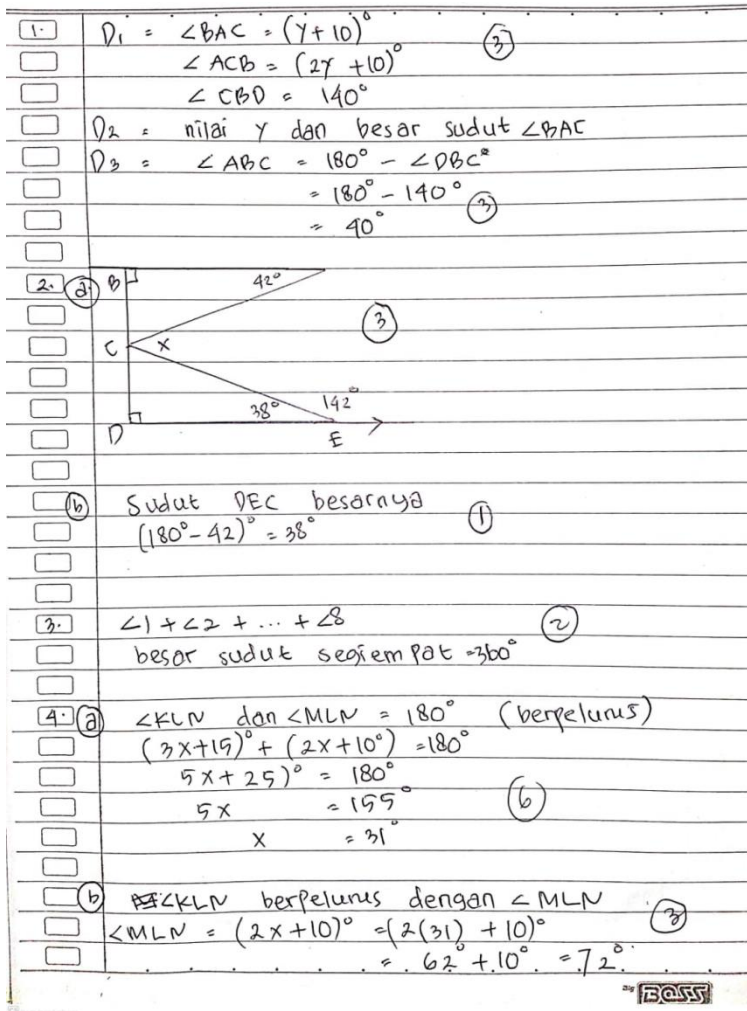 1. D1 = ∠BAC = (Y + 10)° (3)
∠ACB = (2Y + 10)°
∠CBD = 140°
D2 = nilai Y dan besar sudut ∠BAC
D3 = ∠ABC = 180° - ∠DBC°
= 180° - 140° (3)
= 40°
2. (a) B 42°
(3)
C X
38° 142°
D E
(b) Sudut DEC besarnya
(180° - 42)° = 38° (1)
3. ∠1 + ∠2 + ... + ∠8 (2)
besar sudut segiempat = 360°
4. (a) ∠KLN dan ∠MLN = 180° (berpelurus)
(3x+15)° + (2x+10°) = 180°
5x + 25)° = 180°
5x = 155° (6)
x = 31°
(b) ∠KLN berpelurus dengan ∠MLN
∠MLN = (2x+10)° = (2(31) + 10)° (3)
= 62° + 10° = 72°
Big BOSS